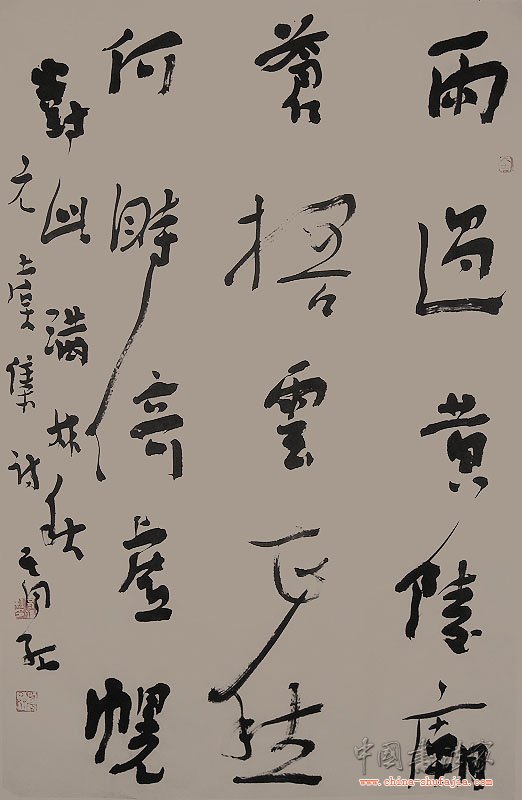 雨過黃陵廟
蒼梧雲正愁
何時倚虛幌
對此滿林秋
元虞集詩
中國書法家
www.china-shufajia.com